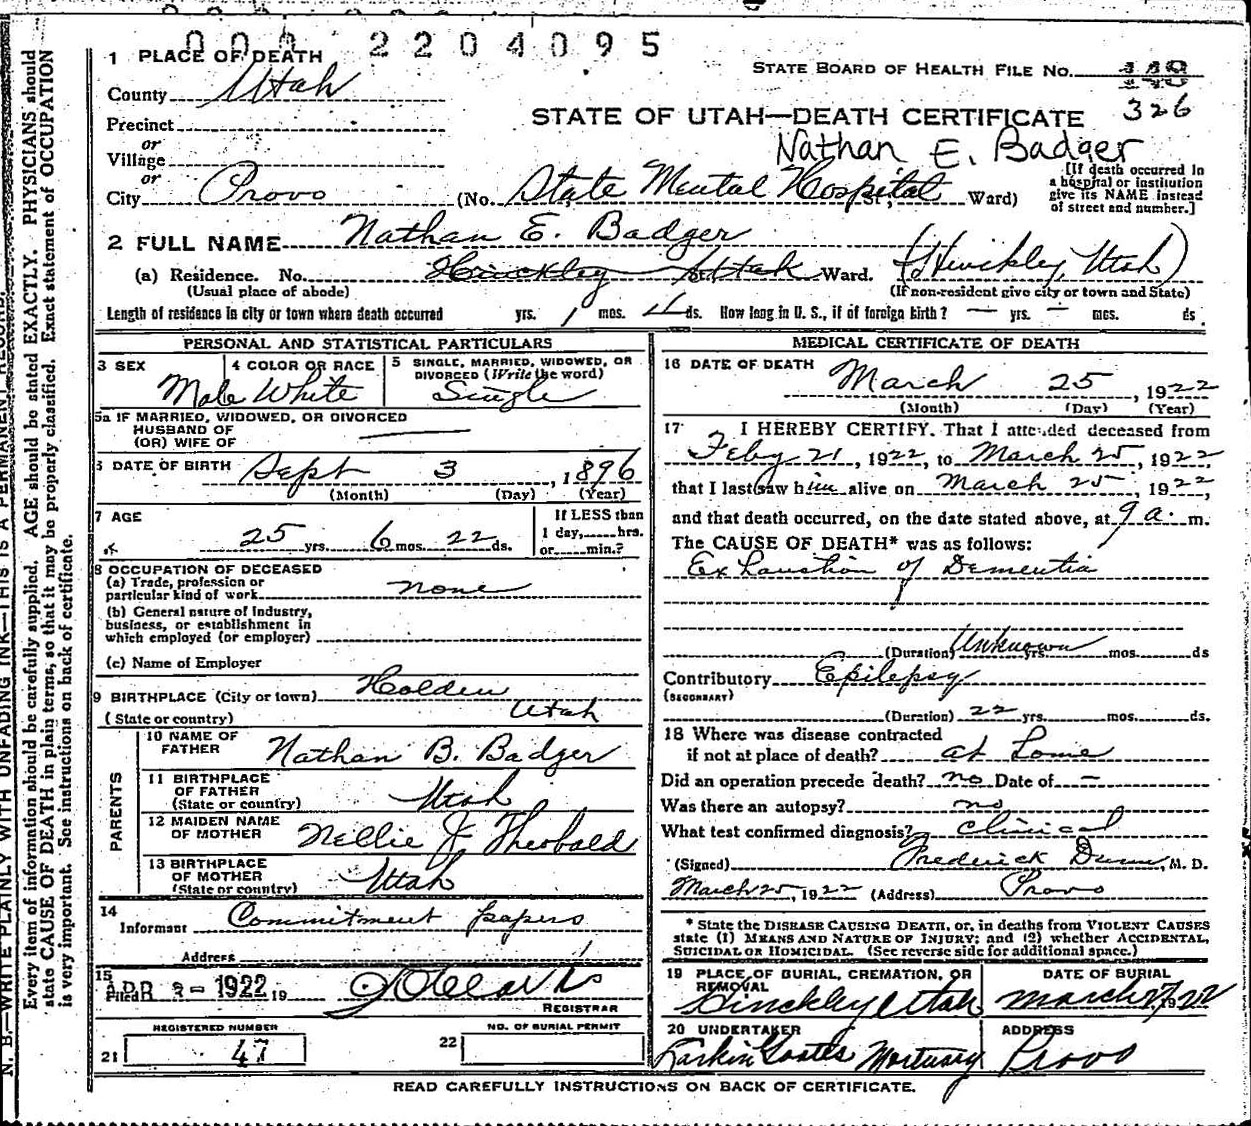 0 0 0 2 2 0 4 0 9 5
1 PLACE OF DEATH
STATE BOARD OF HEALTH FILE NO.
County Utah
326
Precinct
STATE OF UTAH—DEATH CERTIFICATE
or
Nathan E. Badger
Village
or
City Provo (No. State Mental Hospital St., Ward)
[If death occurred in
a hospital or institution
give its NAME instead
of street and number.]
2 FULL NAME Nathan E. Badger
(a) Residence. No. Hinckley Utah Ward. (Hinckley, Utah)
(Usual place of abode) (If non-resident give city or town and State)
Length of residence in city or town where death occurred yrs. 1 mos. 4 ds. How long in U. S., if of foreign birth? — yrs. — mos. ds
PERSONAL AND STATISTICAL PARTICULARS
3 SEX 4 COLOR OR RACE 5 SINGLE, MARRIED, WIDOWED, OR
DIVORCED (Write the word)
Male White Single
5a IF MARRIED, WIDOWED, OR DIVORCED
HUSBAND OF
(OR) WIFE OF
6 DATE OF BIRTH Sept 3, 1896
(Month) (Day) (Year)
7 AGE If LESS than
25 yrs. 6 mos. 22 ds. 1 day, hrs.
or min.?
8 OCCUPATION OF DECEASED
(a) Trade, profession or
particular kind of work none
(b) General nature of industry,
business, or establishment in
which employed (or employer)
(c) Name of Employer
9 BIRTHPLACE (City or town) Holden
(State or country) Utah
PARENTS
10 NAME OF
FATHER Nathan B. Badger
11 BIRTHPLACE
OF FATHER
(State or country) Utah
12 MAIDEN NAME
OF MOTHER Nellie J Theobald
13 BIRTHPLACE
OF MOTHER
(State or country) Utah
14
Informant Commitment papers
Address
15
Filed APR 3- 1922 19
REGISTRAR
REGISTERED NUMBER NO. OF BURIAL PERMIT
21 47 22
MEDICAL CERTIFICATE OF DEATH
16 DATE OF DEATH March 25, 1922
(Month) (Day) (Year)
17 I HEREBY CERTIFY. That I attended deceased from
Feby 21, 1922, to March 25, 1922
that I last saw him alive on March 25, 1922,
and that death occurred, on the date stated above, at 9 a. m.
The CAUSE OF DEATH* was as follows:
Exhaustion of Dementia
(Duration) Unknown yrs. mos. ds
Contributory Epilepsy
(SECONDARY)
(Duration) 22 yrs. mos. ds.
18 Where was disease contracted
if not at place of death? at home
Did an operation precede death? no Date of —
Was there an autopsy? no
What test confirmed diagnosis? Clinical
(Signed) Frederick Dunn, M. D.
March 25, 1922 (Address) Provo
* State the DISEASE CAUSING DEATH, or, in deaths from VIOLENT CAUSES
state (1) MEANS AND NATURE OF INJURY; and (2) whether ACCIDENTAL,
SUICIDAL OR HOMICIDAL. (See reverse side for additional space.)
19 PLACE OF BURIAL, CREMATION, OR
REMOVAL DATE OF BURIAL
Hinckley Utah March 27, 1922
20 UNDERTAKER ADDRESS
Larkin Mortuary Provo
READ CAREFULLY INSTRUCTIONS ON BACK OF CERTIFICATE.
N. B.—WRITE PLAINLY WITH UNFADING INK—THIS IS A PERMANENT RECORD.
Every item of information should be carefully supplied. AGE should be stated EXACTLY. PHYSICIANS should
state CAUSE OF DEATH in plain terms, so that it may be properly classified. Exact statement of OCCUPATION
is very important. See instructions on back of certificate.